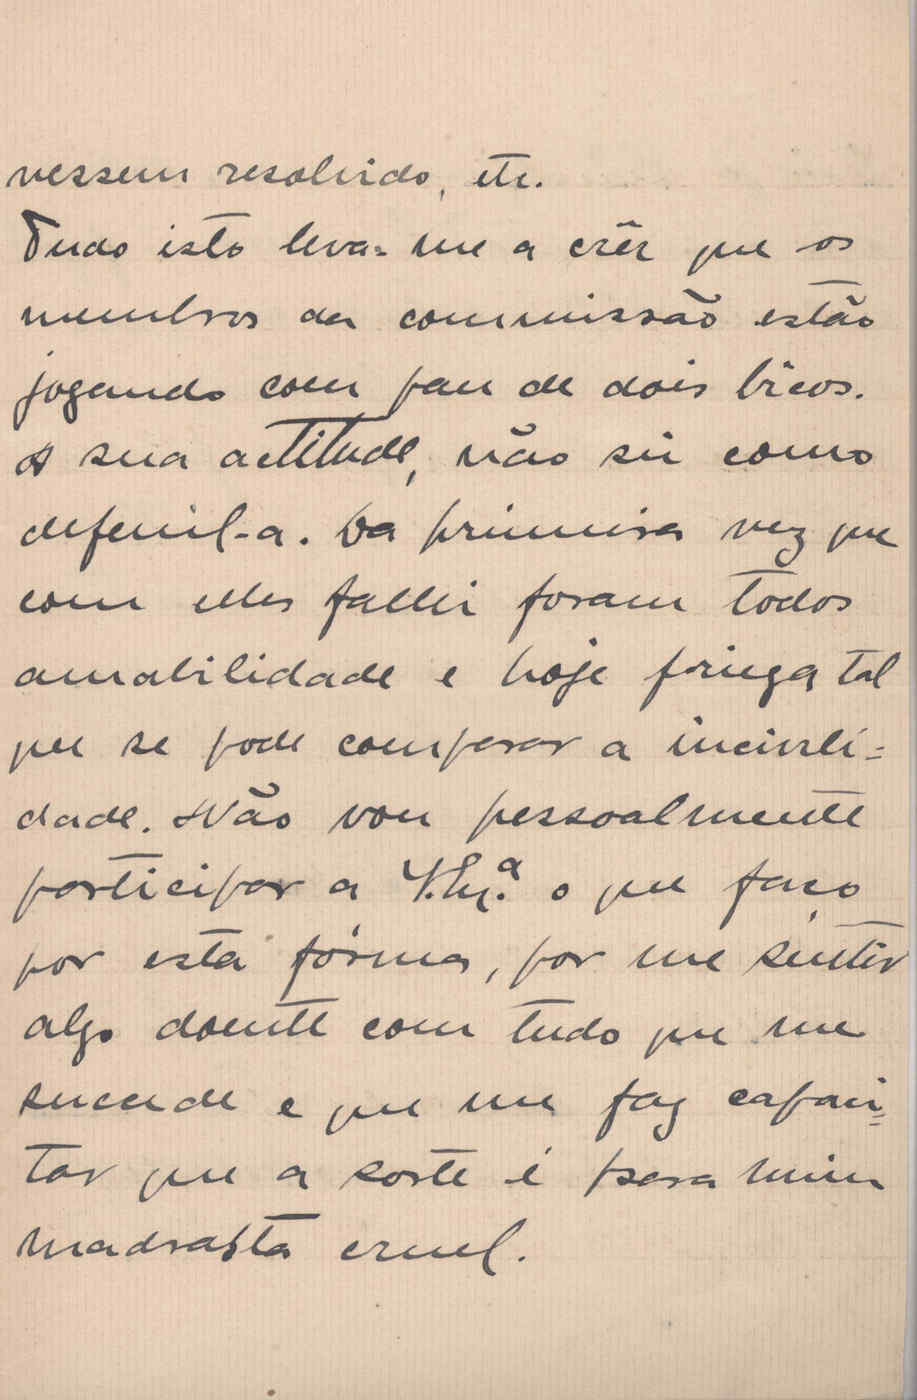 vessem resolvido, etc.
Tudo isto leva-me a crêr que os
membros da commissão estão
jogando com pau de dois bicos.
A sua actitude, não sei como
defenil-a. Da primeira vez que
com elles fallei foram todos
amabilidade e hoje frieza tal
que se pode comparar a incivili=
dade. Não vou pessoalmente
participar a V. Ex.ª o que faço
por esta fórma, por me sentir
algo doente com tudo que me
succede e que me faz
que a sorte é para mim
madrasta cruel.